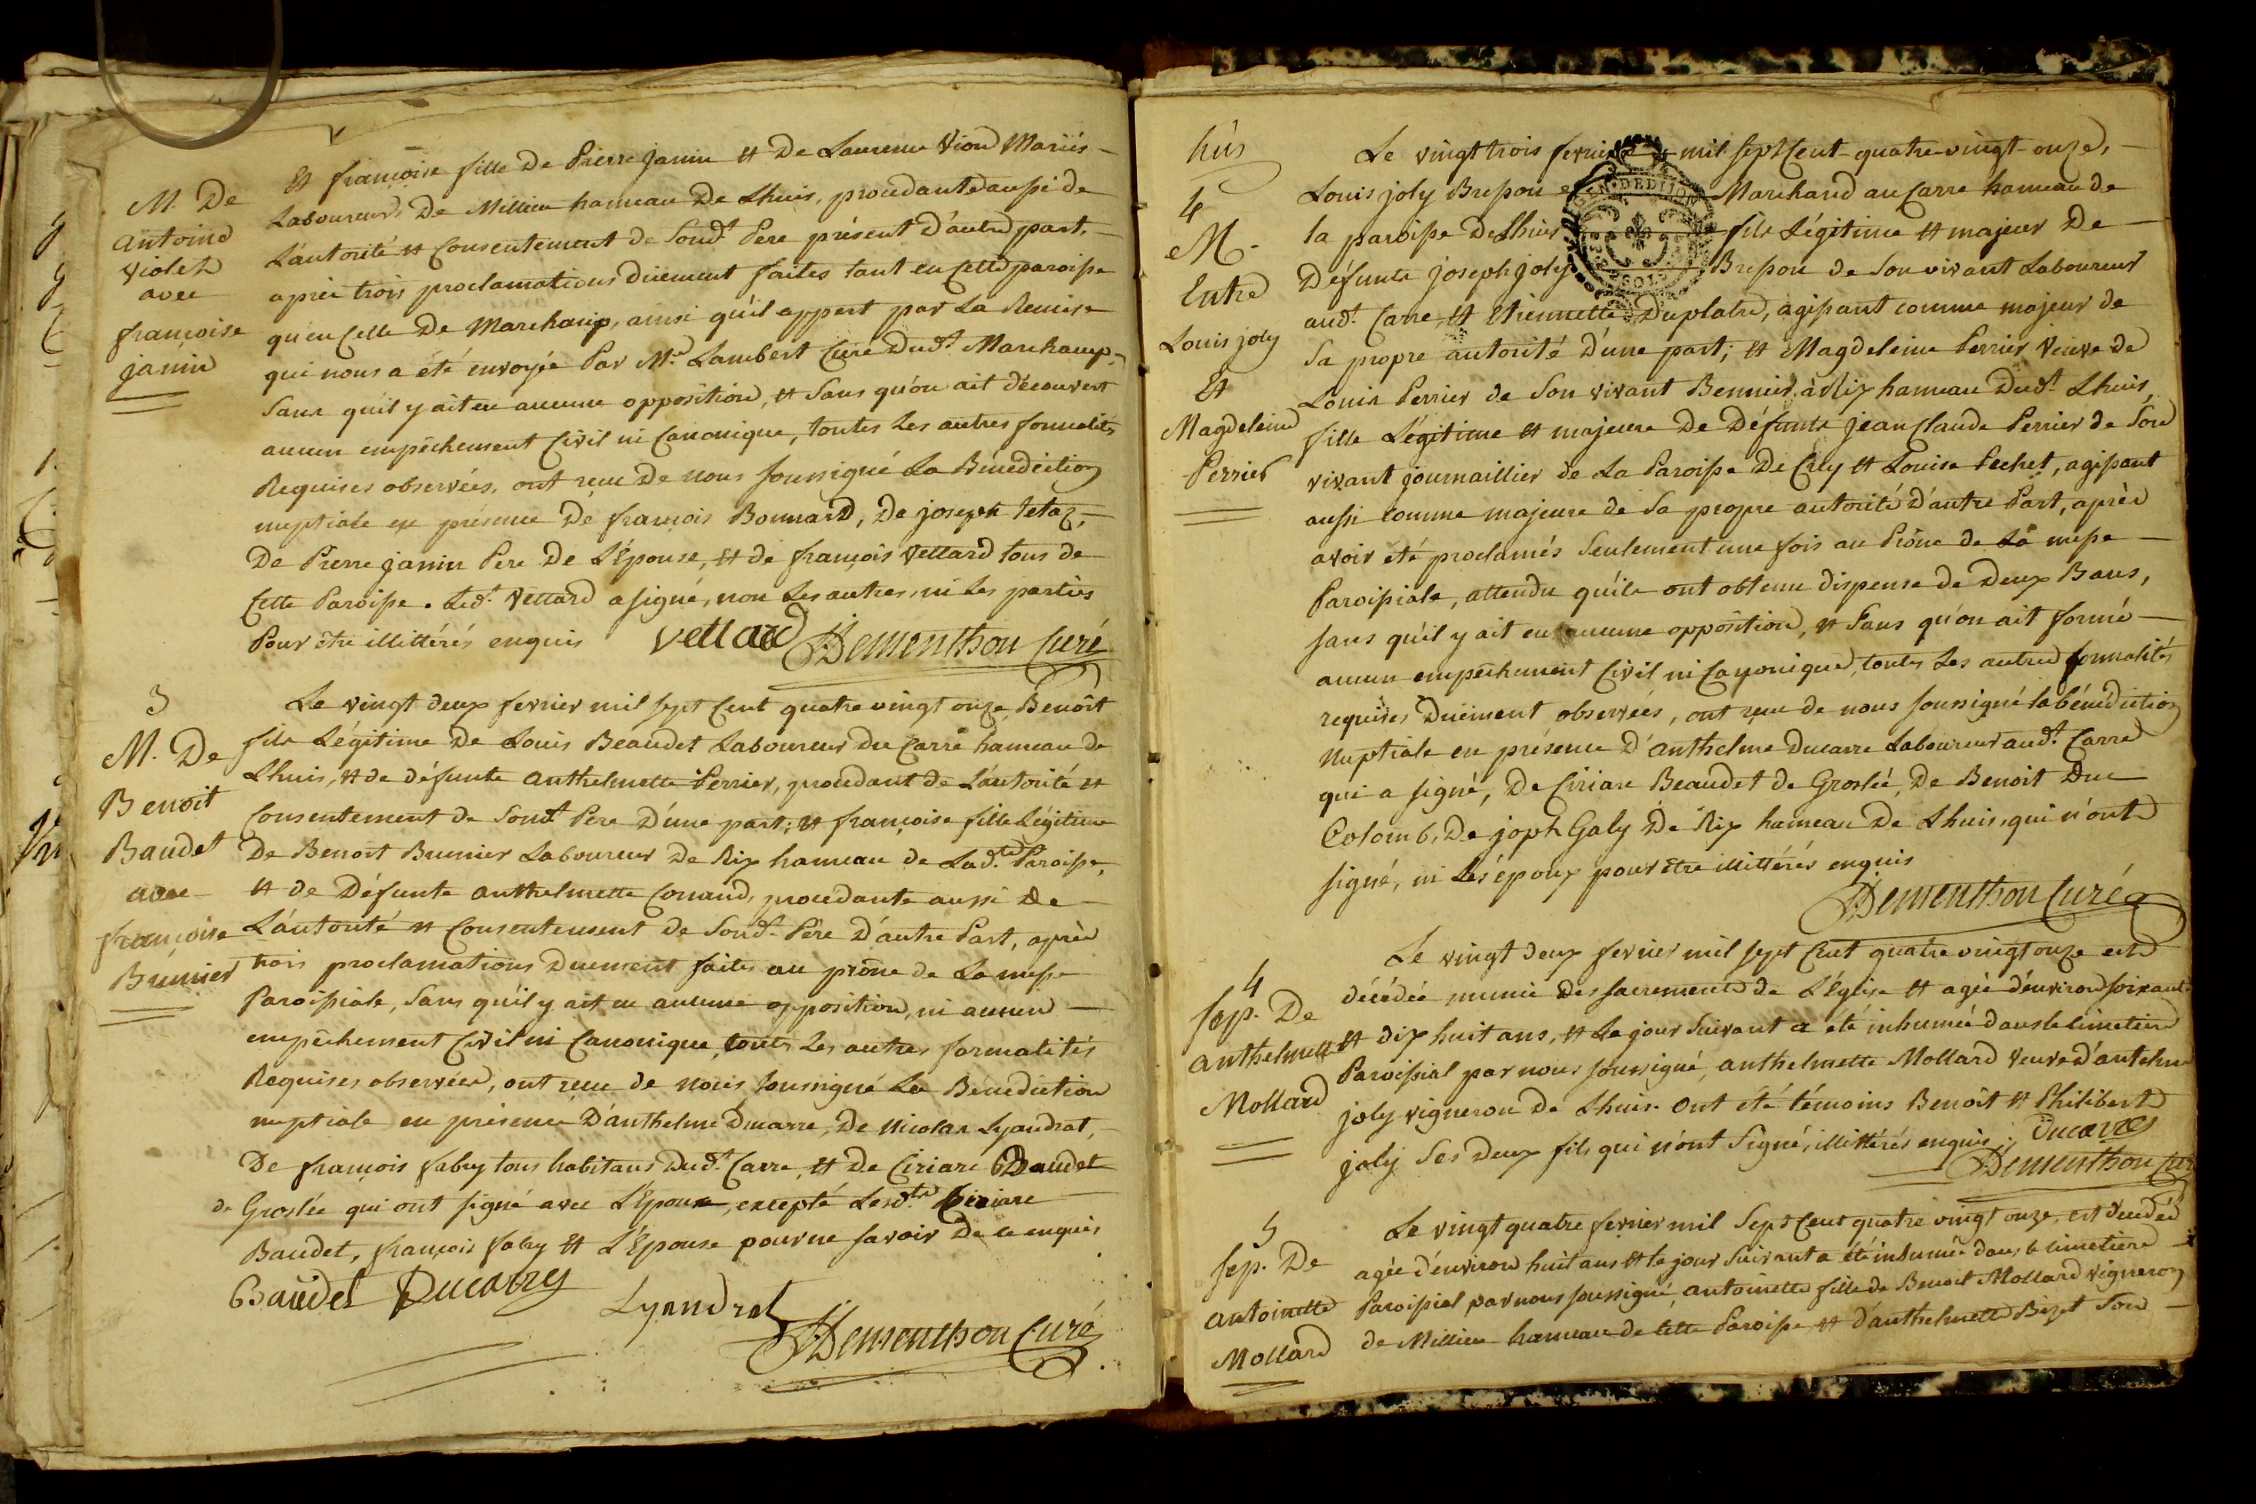 M. De
Antoine
Violet
avec
françoise
janin
Et françoise fille de Pierre janin et De Laurence Viond Mariés
Laboureurs De Millieu hameau De Lhuis, procedante aussi de
L'autorité et Consentement de Sond.t Pere présent D'autre part,
après trois proclamations duement faites tant en Cette paroisse
qu'en Celle De Marchamp, ainsi qu'il appert par La Remise
qui nous a été envoyée Par M.re Lambert Curé Dud.t Marchamp,
Sans qu'il y ait eu aucune opposition, et Sans qu'on ait découvert
aucun empêchement Civil ni Canonique, toutes Les autres formalités
Requises observées, ont reçu De nous Soussigné La Bénédiction
nuptiale en présence De françois Bonnard, De joseph tetaz,
De Pierre janin Pere De L'Épouse, et de françois Vettard tous de
Cette Paroisse. Led.t Vettard a signé, non Les autres, ni Les parties
Pour être illittérés enquis Vettard Dementhon Curé
3
M. De
Benoit
Baudet
avec
françoise
Brunier
Le vingt deux fevrier mil sept Cent quatre vingt onze, Benôit
fils Légitime De Louis Beaudet Laboureur Du Carre hameau de
Lhuis, et de défunte Anthelmette Perrier, procedant de L'autorité et
Consentement de Sond.t Pere D'une part; et françoise fille Légitime
De Benoit Brunier Laboureur De Rix hameau de Lad.te Paroisse,
et de Défunte Anthelmette Conand, procedante aussi De
L'autorité et Consentement de Sond.t Père D'autre Part, après
trois proclamations Duement faites au prône de La messe
Paroissiale, Sans qu'il y ait eu aucune opposition, ni aucun
empêchement Civil ni Canonique, toutes Les autres formalités
Requises observées, ont reçu de nous Soussigné La Bénédiction
nuptiale en présence D'anthelme Ducarre, De Nicolas Lyandrat,
De françois fabry tous habitans Dud.t Carre, et De Ciriare Baudet
de Groslée qui ont signé avec L'Époux, excepté Lesd.ts Ciriare
Baudet, françois fabry et L'Épouse pour ne savoir De ce enquis
Baudet Ducarre
Lyandrat
Dementhon Curé
hus
4
M.
Entre
Louis joly
Et
Magdeleine
Perrier
Le vingt trois fevrier mil sept Cent quatre vingt onze,
Louis joly Bresson Marchand au Carre hameau de
la paroisse De Lhuis fils Légitime et majeur De
Défunts joseph joly Bresson de Son vivant Laboureur
aud.t Carre, et Etiennette Duplatre, agissant comme majeur de
Sa propre autorité D'une part; et Magdeleine Perrier Veuve de
Louis Perrier de Son vivant à Rix hameau Dud.t Lhuis,
fille Légitime et majeure De Défunts Jean Claude Perrier de Son
vivant journaillier de La Paroisse De et Louise Pechet, agissant
aussi comme majeure de Sa propre autorité D'autre Part, après
avoir été proclamés Seulement une fois au Prône de La messe
Paroissiale, attendu qu'ils ont obtenu dispense de Deux Bans,
sans qu'il y ait eu aucune opposition, et Sans qu'on ait formé
aucun empêchement Civil ni Canonique, toutes Les autres formalités
requises Duement observées, ont reçu de nous soussigné la bénédiction
Nuptiale en présence D'anthelme Ducarre Laboureur aud.t Carre
qui a signé, De Ciriare Beaudet de Groslée, De Benoit Duc
Colomb, De joph Galy De Rix hameau De Lhuis, qui n'ont
signé, ni Les époux pour être illittérés enquis
Dementhon Curé
4
Sep. De
Anthelmette
Mollard
Le vingt deux fevrier mil sept Cent quatre vingt onze est
décédée munie Des sacrements de L'Église et agée d'environ soixante
et dix huit ans, et Le jour Suivant a été inhumée dans le cimetiere
Paroissial par nous soussigné, anthelmette Mollard Veuve d'antelme
joly vigneron De Lhuis. Ont été témoins Benôit et Philibert
joly Ses Deux fils qui n'ont Signé, illittérés enquis. Ducarre
Dementhon Cur
5
Sep. De
Antoinette
Mollard
Le vingt quatre fevrier mil Sept Cent quatre vingt onze, est décédée
agée d'environ huit ans et le jour Suivant a été inhumée dans le cimetiere
Paroissial par nous soussigné Antoinette fille de Benoit Mollard Vigneron
de Millieu hameau de Cette Paroisse et D'anthelmette Bizet Son